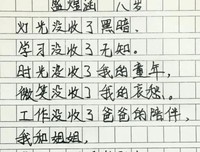 煜涵 八岁
灯光没收了黑暗,
学习没收了无知。
时光没收了我的童年,
微笑没收了我的哀愁。
工作没收了爸爸的陪伴,
我和姐姐,